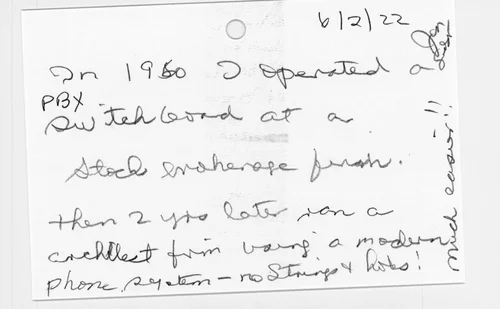 6/2/22
In 1960 I operated a
PBX
switchboard at a
stock brokerage firm.
then 2 yrs later ran a
architest firm using a modern
phone system - no strings & holes!
much easier!!